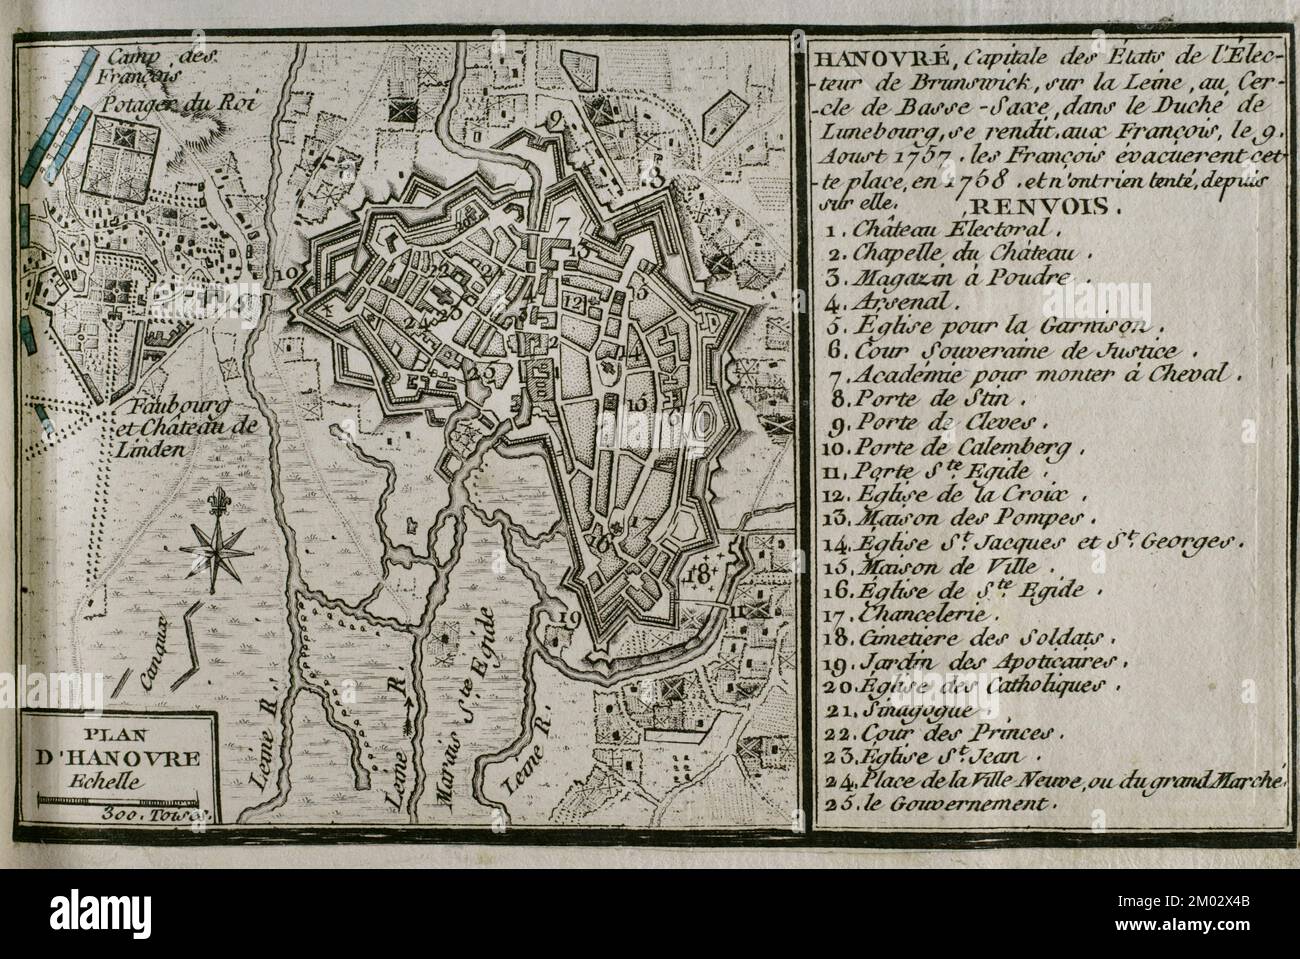 Camp des
François
Potager du Roi
Faubourg
et Château de
Linden
Canaux
Leine R.
Leine R.
Marais Ste. Egide
Leine R.
PLAN
D'HANOVRE
Echelle
300. Toises.
HANOVRÉ, Capitale des États de l'Élec-
-teur de Brunswick, sur la Leine, au Cer-
-cle de Basse-Saxe, dans le Duché de
Lunebourg, se rendit aux François, le 9.
Aoust 1757. les François évacuerent cet-
-te place, en 1758. et n'ont rien tenté, depuis
sur elle.
RENVOIS.
1. Château Electoral.
2. Chapelle du Château.
3. Magazin à Poudre.
4. Arsenal.
5. Eglise pour la Garnison.
6. Cour Souveraine de Justice.
7. Académie pour monter à Cheval.
8. Porte de Stin.
9. Porte de Cleves.
10. Porte de Calemberg.
11. Porte Ste. Egide.
12. Eglise de la Croix.
13. Maison des Pompes.
14. Eglise St. Jacques et St. Georges.
15. Maison de Ville.
16. Église de Ste. Egide.
17. Chancelerie.
18. Cimetiere des Soldats.
19. Jardin des Apoticaires.
20. Eglise des Catholiques.
21. Sinagogue.
22. Cour des Princes.
23. Eglise St. Jean.
24. Place de la Ville Neuve, ou du grand Marché.
25. le Gouvernement.
alamy
Image ID: 2M02X4B
www.alamy.com